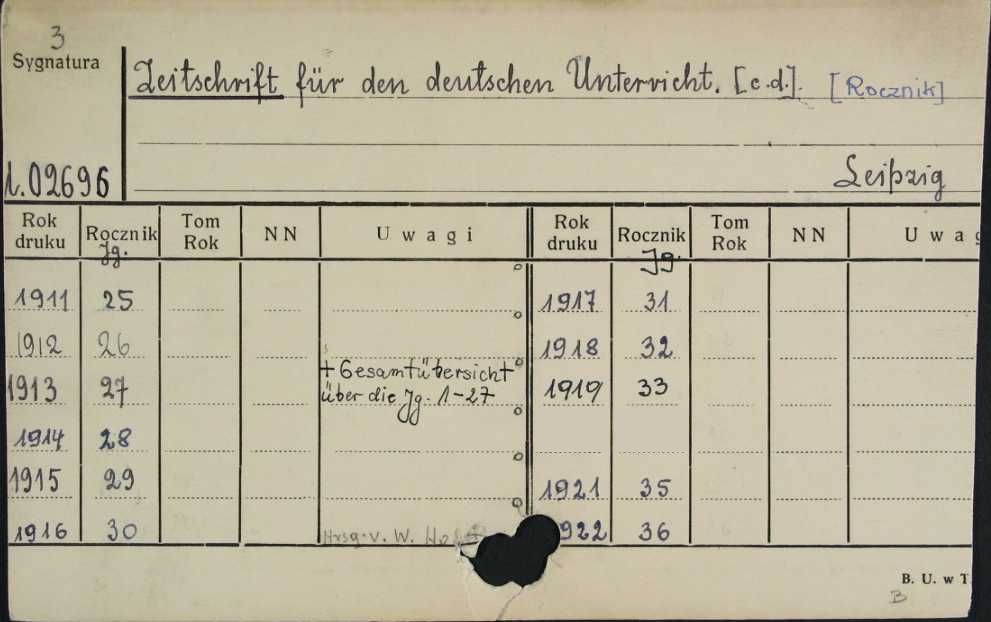 3
Sygnatura
Zeitschrift für den deutschen Unterricht. [c.d.]. [Rocznik]
1.02696
Leipzig
Rok druku Rocznik Jg. Tom Rok NN Uwagi Rok druku Rocznik Jg. Tom Rok NN Uwag
1911 25 1917 31
1912 26 1918 32
+ Gesamtübersicht
1913 27 über die Jg. 1-27 1919 33
1914 28
1915 29 1921 35
1916 30 Hrsg. v. W. 922 36
B. U. w T.
B